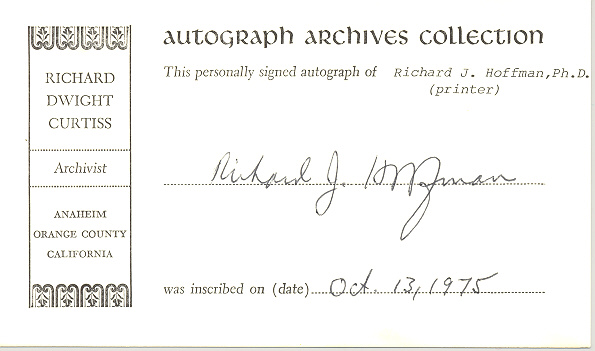 autograph archives collection
This personally signed autograph of Richard J. Hoffman,Ph.D.
(printer)
RICHARD
DWIGHT
CURTISS
Archivist
ANAHEIM
ORANGE COUNTY
CALIFORNIA
Richard J. Hoffman
was inscribed on (date) Oct. 13, 1975